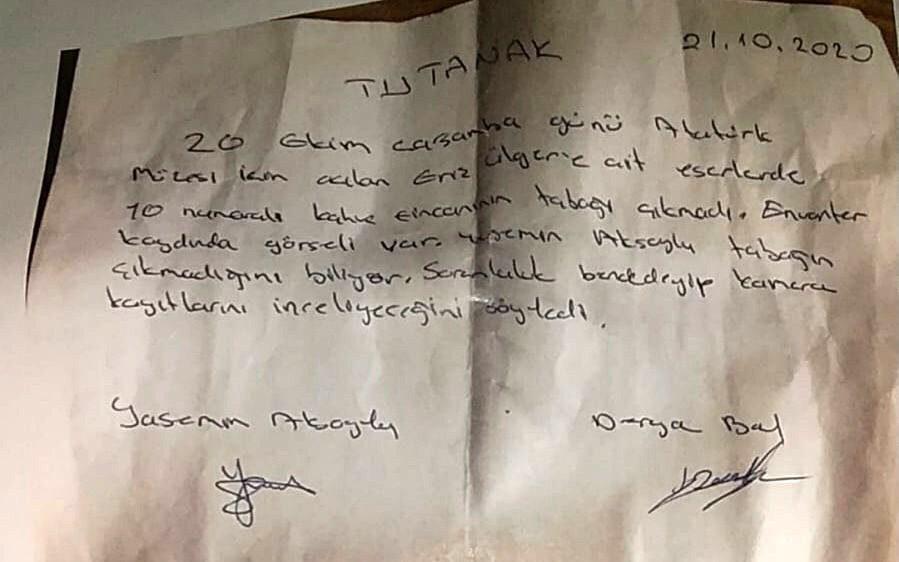 21.10.2020
TUTANAK
20 Ekim çarşamba günü Atatürk
Müzesi için açılan Eriz Ülgen'e ait eserlerde
10 numaralı kahve fincanının tabağı çıkmadı. Envanter
kaydında görseli var. Yasemin Aksoylu tabağın
çıkmadığını biliyor. Sorumluluk bende deyip kamera
kayıtlarını inceliyeceğini söyledi.
Yasemin Aksoylu
Derya Bal